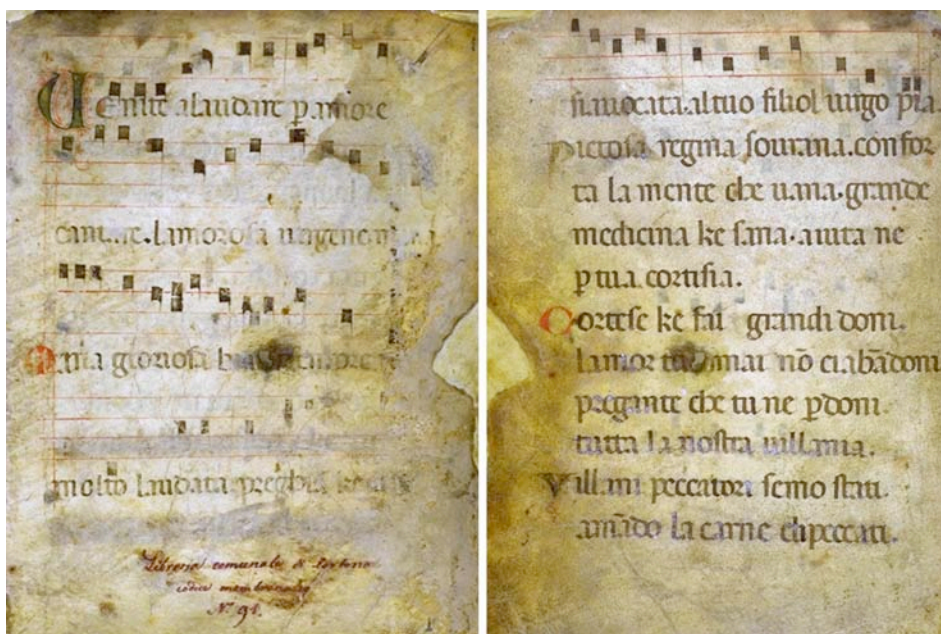 Venite a laudare p amore
cantare. lamorosa uergene m
aria gloriosa b
molto laudata. preghiā ke
Libreria comunale di Cortona
codice membranaceo
Nº 91.
si auocata. al tuo filiol uirgo pia
Pietosa regina sourana. confor
ta la mente che uana. grande
medicina ke sana. aiuta ne
p tua cortisia.
Cortese ke fai grandi doni.
lamor tuo mai nō ci abādoni
pregante che tu ne pdoni
tutta la nostra uillania.
Villani peccatori semo stati.
amādo la carne eli peccati.